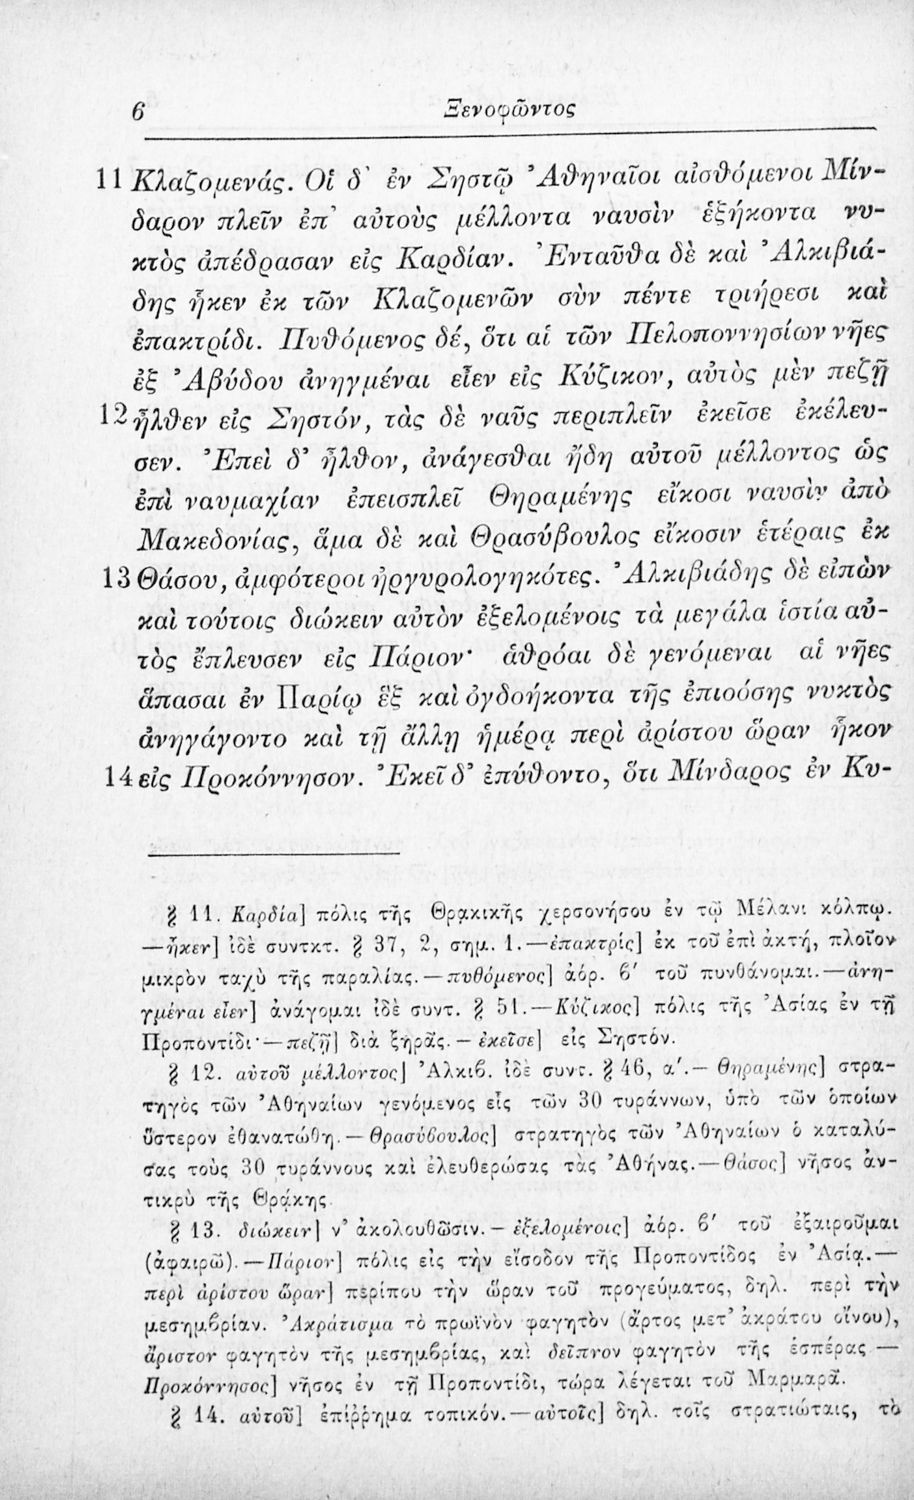 6
Ξενοφῶντος
11 Κλαζομενάς. Οἱ δ᾽ ἐν Σηστῷ Ἀθηναῖοι αἰσθόμενοι Μίν-
δαρον πλεῖν ἐπ᾽ αὐτοὺς μέλλοντα ναυσὶν ἑξήκοντα νυ-
κτὸς ἀπέδρασαν εἰς Καρδίαν. Ἐνταῦθα δὲ καὶ Ἀλκιβιά-
δης ἧκεν ἐκ τῶν Κλαζομενῶν σὺν πέντε τριήρεσι καὶ
ἐπακτρίδι. Πυθόμενος δέ, ὅτι αἱ τῶν Πελοποννησίων νῆες
ἐξ Ἀβύδου ἀνηγμέναι εἶεν εἰς Κύζικον, αὐτὸς μὲν πεζῇ
12 ἦλθεν εἰς Σηστόν, τὰς δὲ ναῦς περιπλεῖν ἐκεῖσε ἐκέλευ-
σεν. Ἐπεὶ δ᾽ ἦλθον, ἀνάγεσθαι ἤδη αὐτοῦ μέλλοντος ὡς
ἐπὶ ναυμαχίαν ἐπεισπλεῖ Θηραμένης εἴκοσι ναυσὶν ἀπὸ
Μακεδονίας, ἅμα δὲ καὶ Θρασύβουλος εἴκοσιν ἑτέραις ἐκ
13 Θάσου, ἀμφότεροι ἠργυρολογηκότες. Ἀλκιβιάδης δὲ εἰπὼν
καὶ τούτοις διώκειν αὐτὸν ἐξελομένοις τὰ μεγάλα ἱστία αὐ-
τὸς ἔπλευσεν εἰς Πάριον· ἁθρόαι δὲ γενόμεναι αἱ νῆες
ἅπασαι ἐν Παρίῳ ἓξ καὶ ὀγδοήκοντα τῆς ἐπιούσης νυκτὸς
ἀνηγάγοντο καὶ τῇ ἄλλῃ ἡμέρᾳ περὶ ἀρίστου ὥραν ἧκον
14 εἰς Προκόννησον. Ἐκεῖ δ᾽ ἐπύθοντο, ὅτι Μίνδαρος ἐν Κυ-
§ 11. Καρδία] πόλις τῆς Θρᾳκικῆς χερσονήσου ἐν τῷ Μέλανι κόλπῳ.
—ἧκεν] ἰδὲ συντκτ. § 37, 2, σημ. 1.—ἐπακτρίς] ἐκ τοῦ ἐπὶ ἀκτή, πλοῖον
μικρὸν ταχὺ τῆς παραλίας.—πυθόμενος] ἀόρ. β′ τοῦ πυνθάνομαι.—ἀνη-
γμέναι εἶεν] ἀνάγομαι ἰδὲ συντ. § 51.—Κύζικος] πόλις τῆς Ἀσίας ἐν τῇ
Προποντίδι·—πεζῇ] διὰ ξηρᾶς.—ἐκεῖσε] εἰς Σηστόν.
§ 12. αὐτοῦ μέλλοντος] Ἀλκιβ. ἰδὲ συντ. § 46, α′.—Θηραμένης] στρα-
τηγὸς τῶν Ἀθηναίων γενόμενος εἷς τῶν 30 τυράννων, ὑπὸ τῶν ὁποίων
ὕστερον ἐθανατώθη.—Θρασύβουλος] στρατηγὸς τῶν Ἀθηναίων ὁ καταλύ-
σας τοὺς 30 τυράννους καὶ ἐλευθερώσας τὰς Ἀθήνας.—Θάσος] νῆσος ἀν-
τικρὺ τῆς Θρᾴκης.
§ 13. διώκειν] ν᾽ ἀκολουθῶσιν.—ἐξελομένοις] ἀόρ. β′ τοῦ ἐξαιροῦμαι
(ἀφαιρῶ).—Πάριον] πόλις εἰς τὴν εἴσοδον τῆς Προποντίδος ἐν Ἀσίᾳ.—
περὶ ἀρίστου ὥραν] περίπου τὴν ὥραν τοῦ προγεύματος, δηλ. περὶ τὴν
μεσημβρίαν. Ἀκράτισμα τὸ πρωϊνὸν φαγητὸν (ἄρτος μετ᾽ ἀκράτου οἴνου),
ἄριστον φαγητὸν τῆς μεσημβρίας, καὶ δεῖπνον φαγητὸν τῆς ἑσπέρας —
Προκόννησος] νῆσος ἐν τῇ Προποντίδι, τώρα λέγεται τοῦ Μαρμαρᾶ.
§ 14. αὐτοῦ] ἐπίῤῥημα τοπικόν.—αὐτοῖς] δηλ. τοῖς στρατιώταις, τὸ